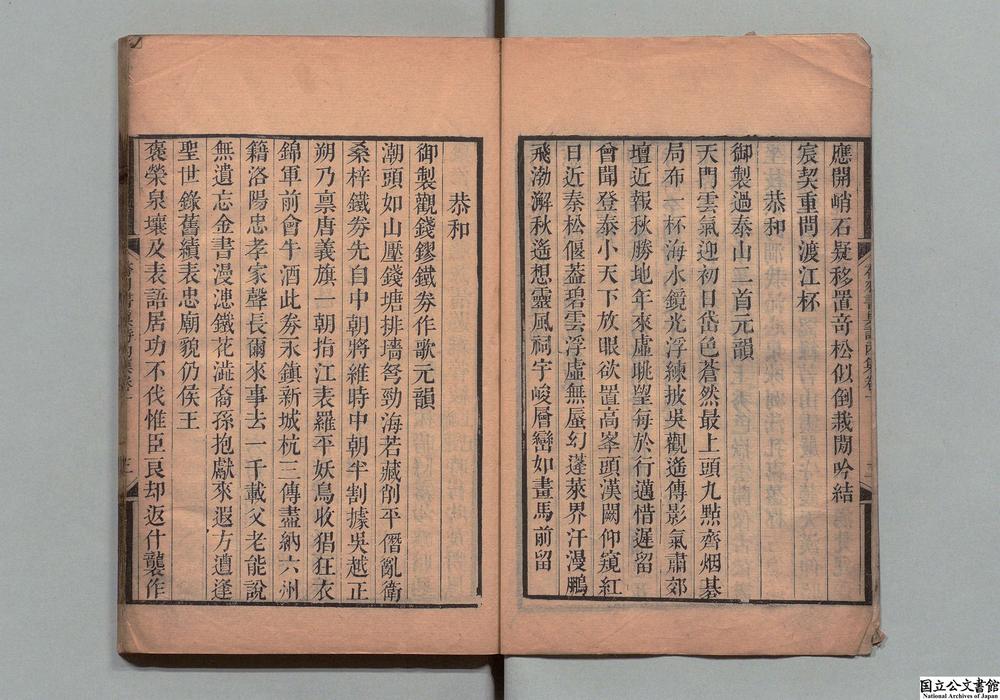 應開峭石疑移置竒松似倒栽閒吟結
宸契重問渡江杯
恭和
御製過泰山二首元韻
天門雲氣迎初日岱色蒼然最上頭九㸃齊烟碁
局布一杯海水鏡光浮練披吳觀遙傳影氣肅郊
壇近報秋勝地年來虛眺望每於行邁惜遲留
曾聞登泰小天下放眼欲置高峯頭漢闕仰窺紅
日近秦松偃蓋碧雲浮虛無蜃幻蓬萊界汗漫鵬
飛渤澥秋遙想靈風祠宇峻層巒如畫馬前留
恭和
御製觀錢鏐鐵券作歌元韻
潮頭如山壓錢塘排墻弩勁海若藏削平僭亂衛
桑梓鐵券先自中朝將維時中朝半割據吳越正
朔乃禀唐義旗一朝指江表羅平妖鳥收猖狂衣
錦軍前會牛酒此券永鎮新城杭三傳盡納六州
籍洛陽忠孝家聲長爾來事去一千載父老能說
無遺忘金書漫漶鐵花澁裔孫抱獻來遐方遭逢
聖世錄舊績表忠廟貌仍侯王
褒榮泉壤及表語居功不伐惟臣良却返什襲作
国立公文書館
National Archives of Japan